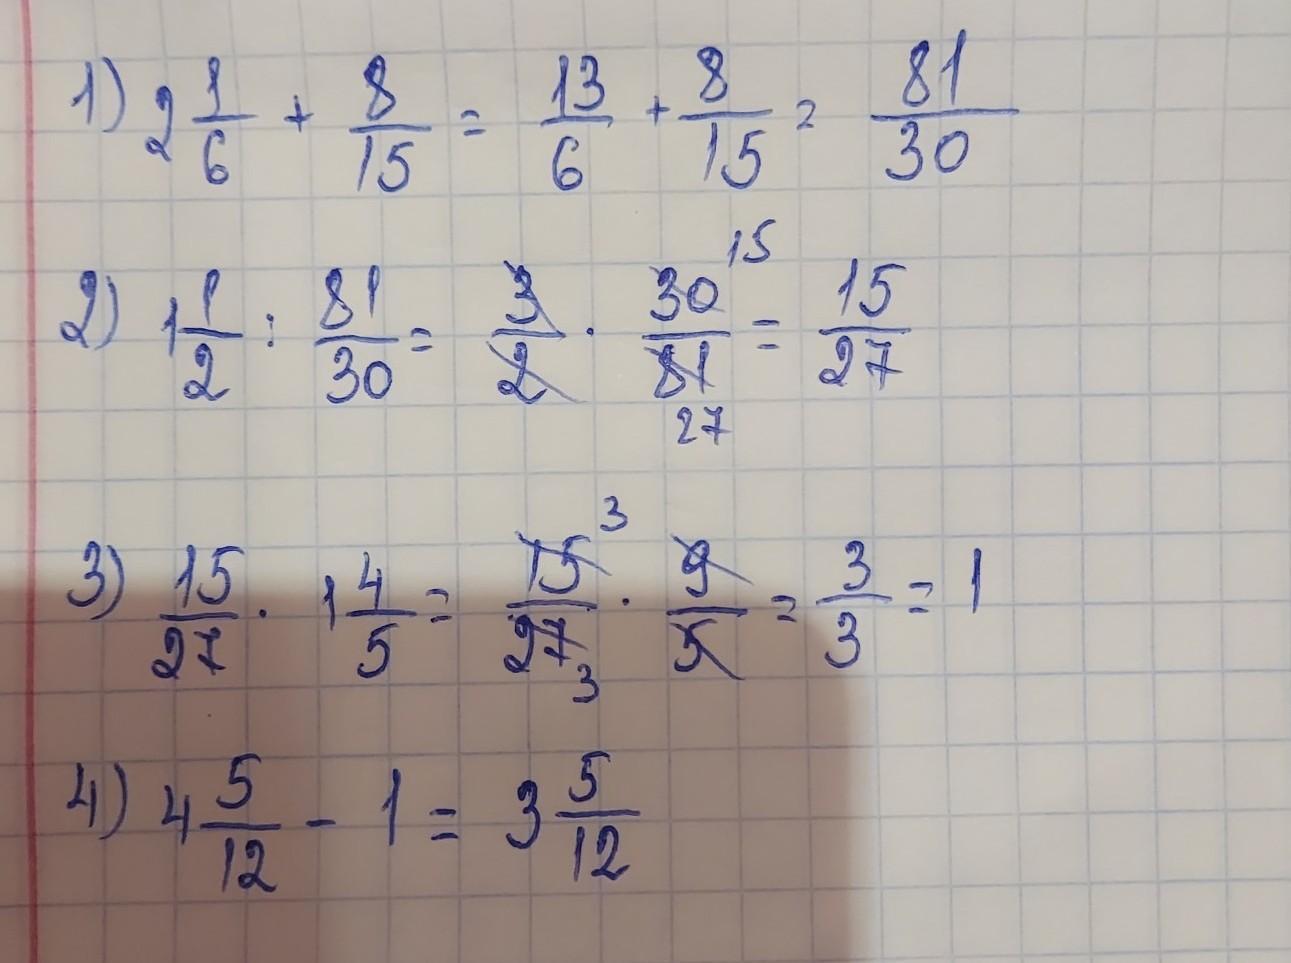 1) 2 1/6 + 8/15 = 13/6 + 8/15 = 81/30
2) 1 1/2 : 81/30 = 3/2 · 30/81 = 15/27
15
27
3) 15/27 · 1 4/5 = 15/27 · 9/5 = 3/3 = 1
3
3
4) 4 5/12 - 1 = 3 5/12